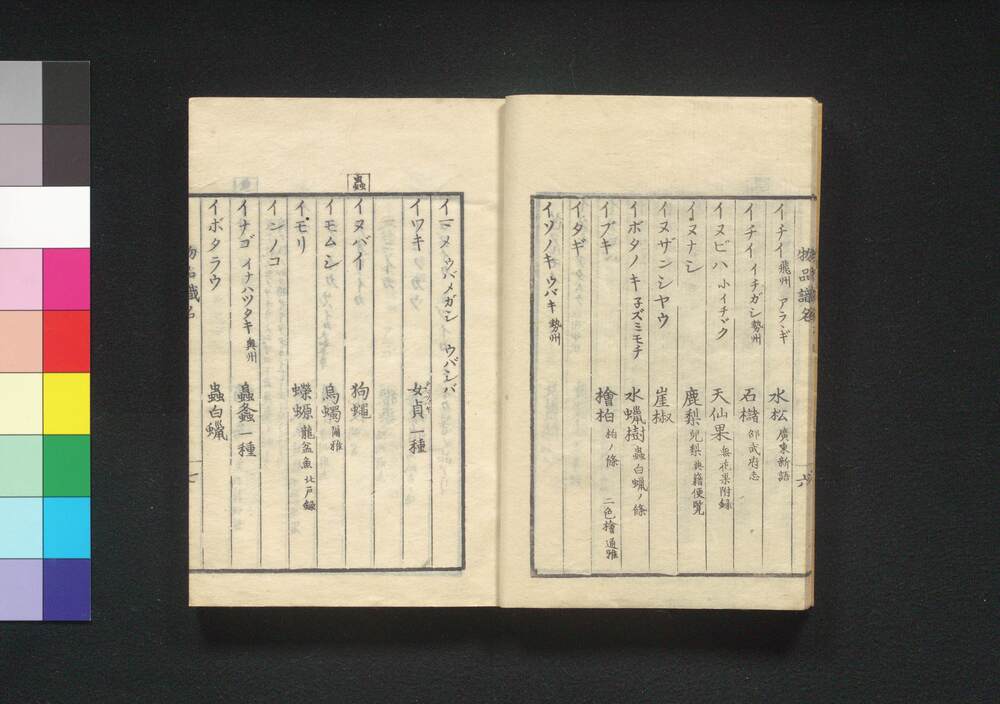 物品識名
六
イチイ 飛州 アラヽギ 水松 廣東新語
イチイ イチガシ 勢州 石槧 邵武府志
イヌビハ 小イチヂク 天仙果 無花果附録
イヌナシ 鹿梨 兒梨 典籍便覧
イヌザンシヤウ 崖椒
イボタノキ 子ズミモチ 水蠟樹 蟲白蠟ノ條
イブキ 檜柏 柏ノ條 二色檜 通雅
イタギ
イソノキ ウバキ 勢州
イマメ ウバメガシ ウバシバ
イワキ 女貞 一種
蟲
イヌバイ 狗蠅
イモムシ 烏蠋 爾雅
イモリ 蠑螈 龍盆魚 北戸録
インノコ
イナゴ イナハツタキ 奥州 蟲螽 一種
イボタラウ 蟲白蠟
物品識名
七